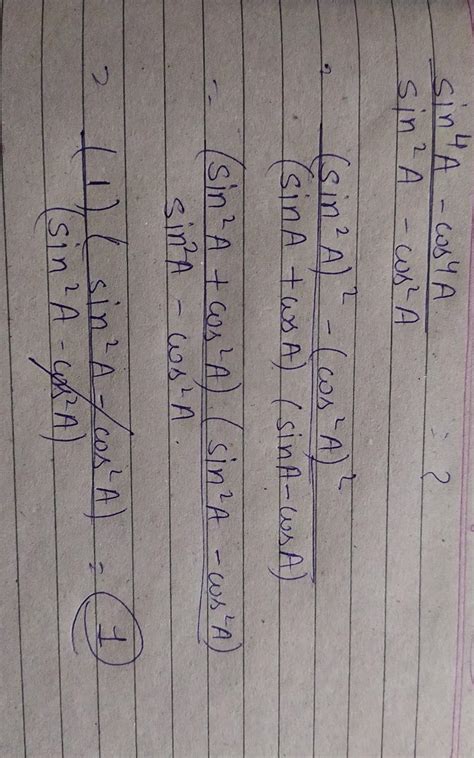 sin⁴A - cos⁴A = ?
sin²A - cos²A
= (sin²A)² - (cos²A)²
(sinA + cosA) (sinA - cosA)
= (sin²A + cos²A) (sin²A - cos²A)
sin²A - cos²A
= (1) (sin²A - cos²A) = 1
(sin²A - cos²A)